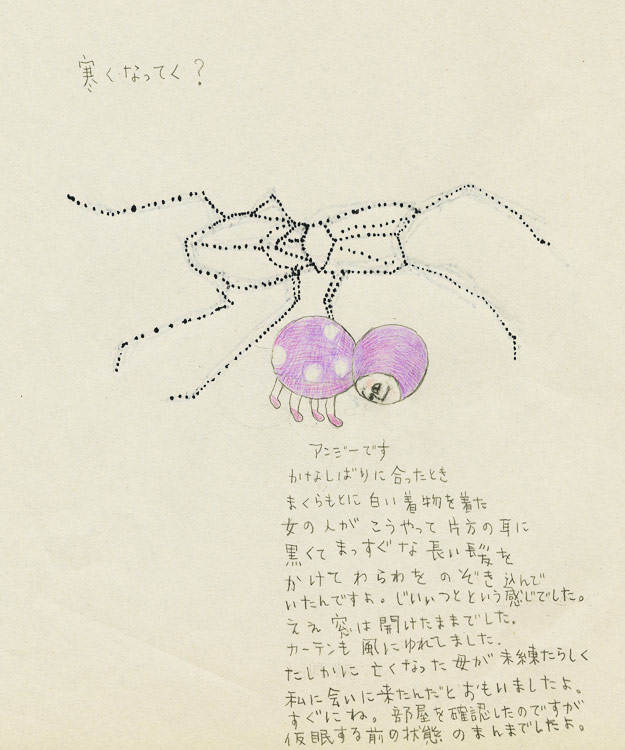 寒くなってく？
アンジーです
かなしばりに合ったとき
まくらもとに白い着物を着た
女の人が こうやって 片方の耳に
黒くて まっすぐな 長い髪を
かけて わらわを のぞき込んで
いたんですよ。じいぃっとという感じでした。
ええ 窓は開けたままでした。
カーテンも 風にゆれてました。
たしかに 亡くなった母が 未練たらしく
私に会いに来たんだとおもいましたよ。
すぐにね。 部屋を確認したのですが
仮眠する前の状態 のまんまでしたよ。